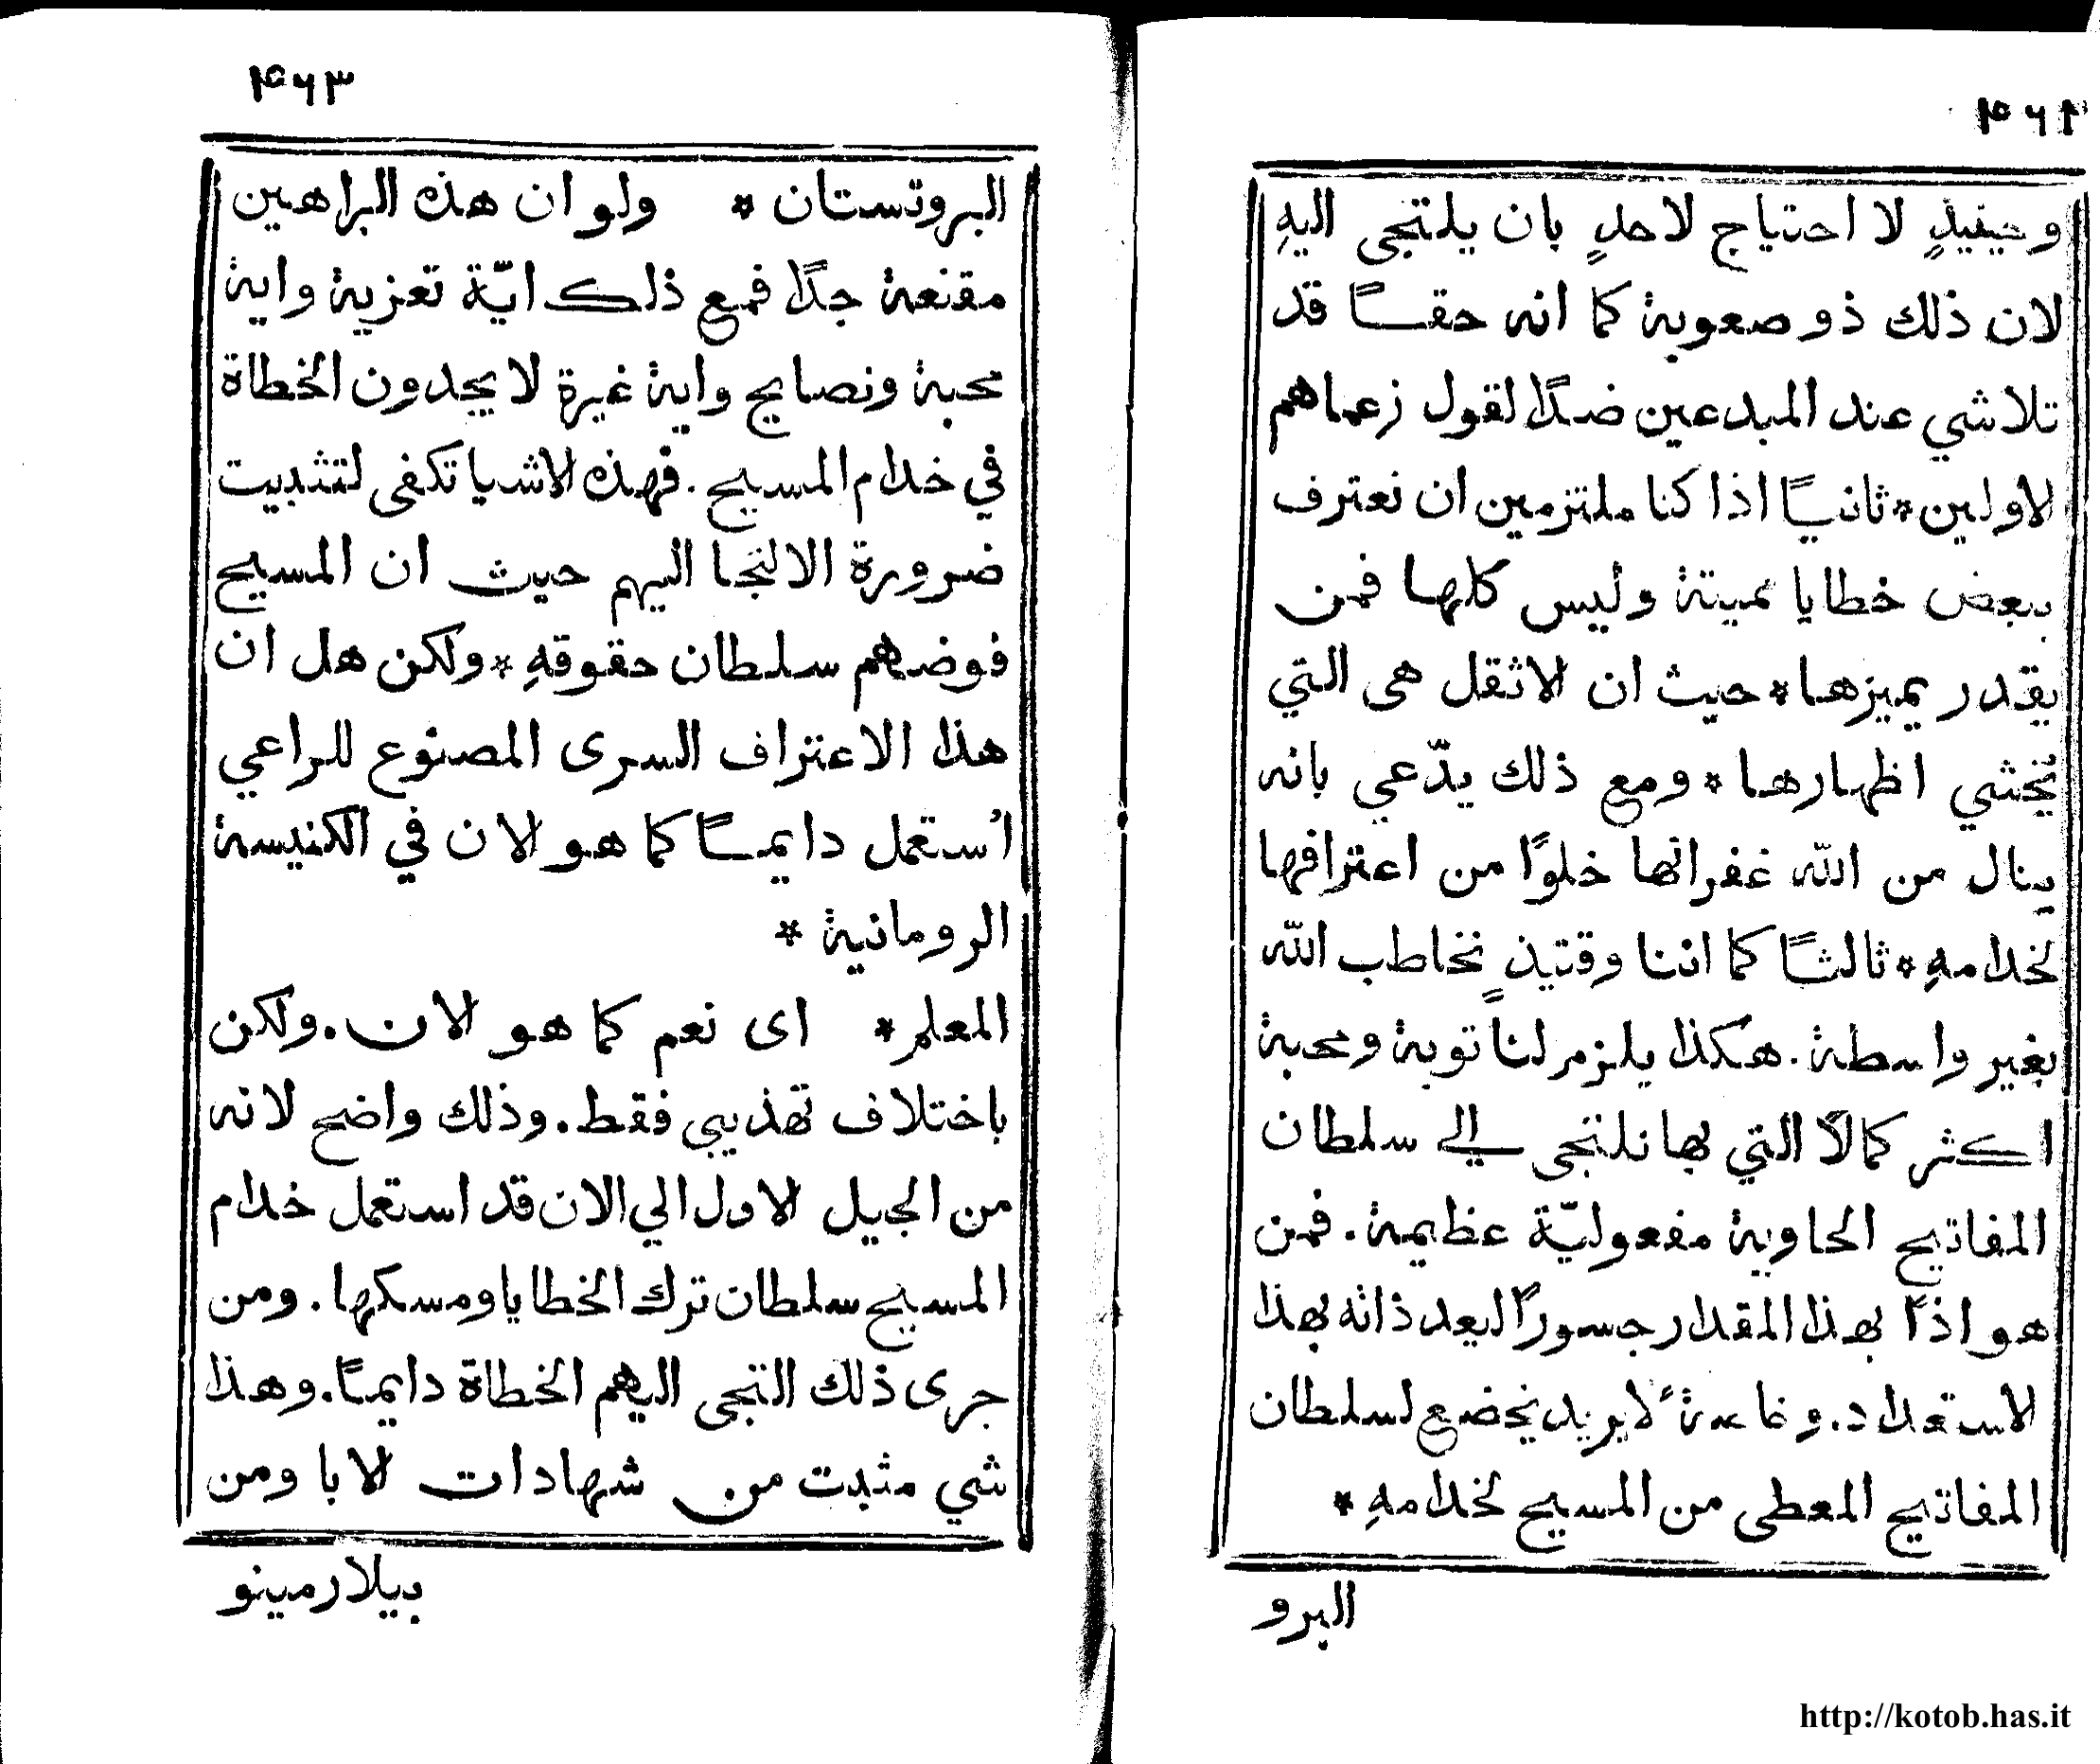 ۴۶۲
وحينيذٍ لا احتياج لاحدٍ بان يلتجى اليهِ
لان ذلك ذو صعوبة كما انه حقًا قد
تلاشي عند المبدعين ضدًا لقول زعماهم
لاولين * ثانيًا اذا كنا ملتزمين ان نعترف
ببعض خطايا مميتة وليس كلها فمن
يقدر يميزها * حيث ان لاثقل هى التي
يخشي اظهارها * ومع ذلك يدّعي بانه
ينال من الله غفرانها خلوًا من اعترافها
لخدامهِ * ثالثًا كما اننا وقتيذٍ نخاطب الله
بغير واسطة . هكذا يلزم لنا توبة ومحبة
اكثر كمالًا التي بها نلتجى الي سلطان
المفاتيح الحاوية مفعوليّة عظيمة . فمن
هو اذًا بهذا المقدار جسورًا ليعد ذاته بهذا
لاستعداد . و لا يريد يخضع لسلطان
المفاتيح المعطى من المسيح لخدامهِ *
البرو
۴۶۳
البروتستان * ولو ان هذه البراهين
مقنعة جدًا فمع ذلك ايّة تعزية واية
محبة ونصايح واية غيرة لا يجدون الخطاة
في خدام المسيح . فهذه لاشيا تكفى لتثبيت
ضرورة الالتجا اليهم حيث ان المسيح
فوضهم سلطان حقوقهِ * ولكن هل ان
هذا الاعتراف السرى المصنوع للراعي
اُستعمل دايمًا كما هو لان في الكنيسة
الرومانية *
المعلم * اى نعم كما هو لان . ولكن
باختلاف تهذيبي فقط . وذلك واضح لانه
من الجيل لاول الي الان قد استعمل خدام
المسيح سلطان ترك الخطايا ومسكها . ومن
جرى ذلك التجى اليهم الخطاة دايمًا . وهذا
شي مثبت من شهادات لابا ومن
بيلارمينو
http://kotob.has.it